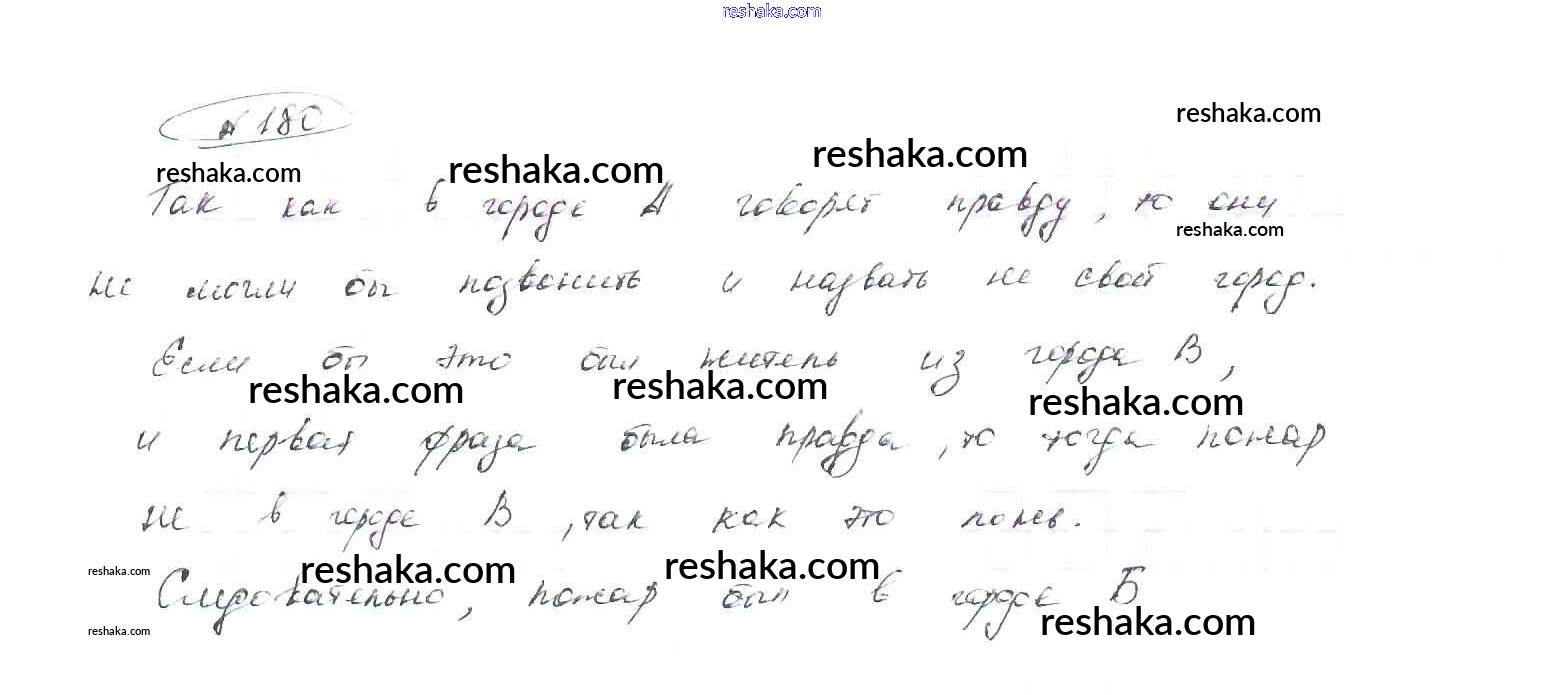 reshaka.com
№ 180
reshaka.com
reshaka.com reshaka.com reshaka.com
Так как в городе А говорят правду, то они
reshaka.com
не могли бы позвонить и назвать не свой город.
Если бы это был житель из города В,
reshaka.com reshaka.com reshaka.com
и первая фраза была правда, то тогда пожар
не в городе В, так как это ложь.
reshaka.com reshaka.com reshaka.com
Следовательно, пожар был в городе Б
reshaka.com reshaka.com